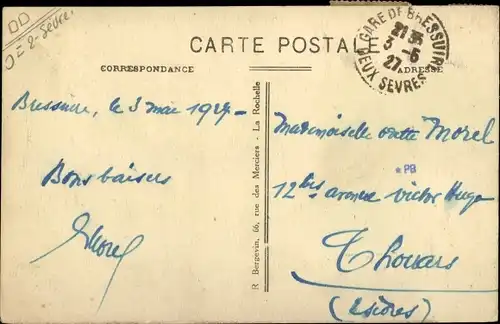 2-Sèvr.
GARE DE BRESSUIRE
21 35
3 -5
27
DEUX SEVRES
CARTE POSTALE
CORRESPONDANCE
ADRESSE
Bressuire, le 3 mai 1927-
Bons baisers
Morel
R Bergevin, 66, rue des Merciers - La Rochelle
Mademoiselle Morel
* PB
12 bis avenue Victor Hugo
Thouars